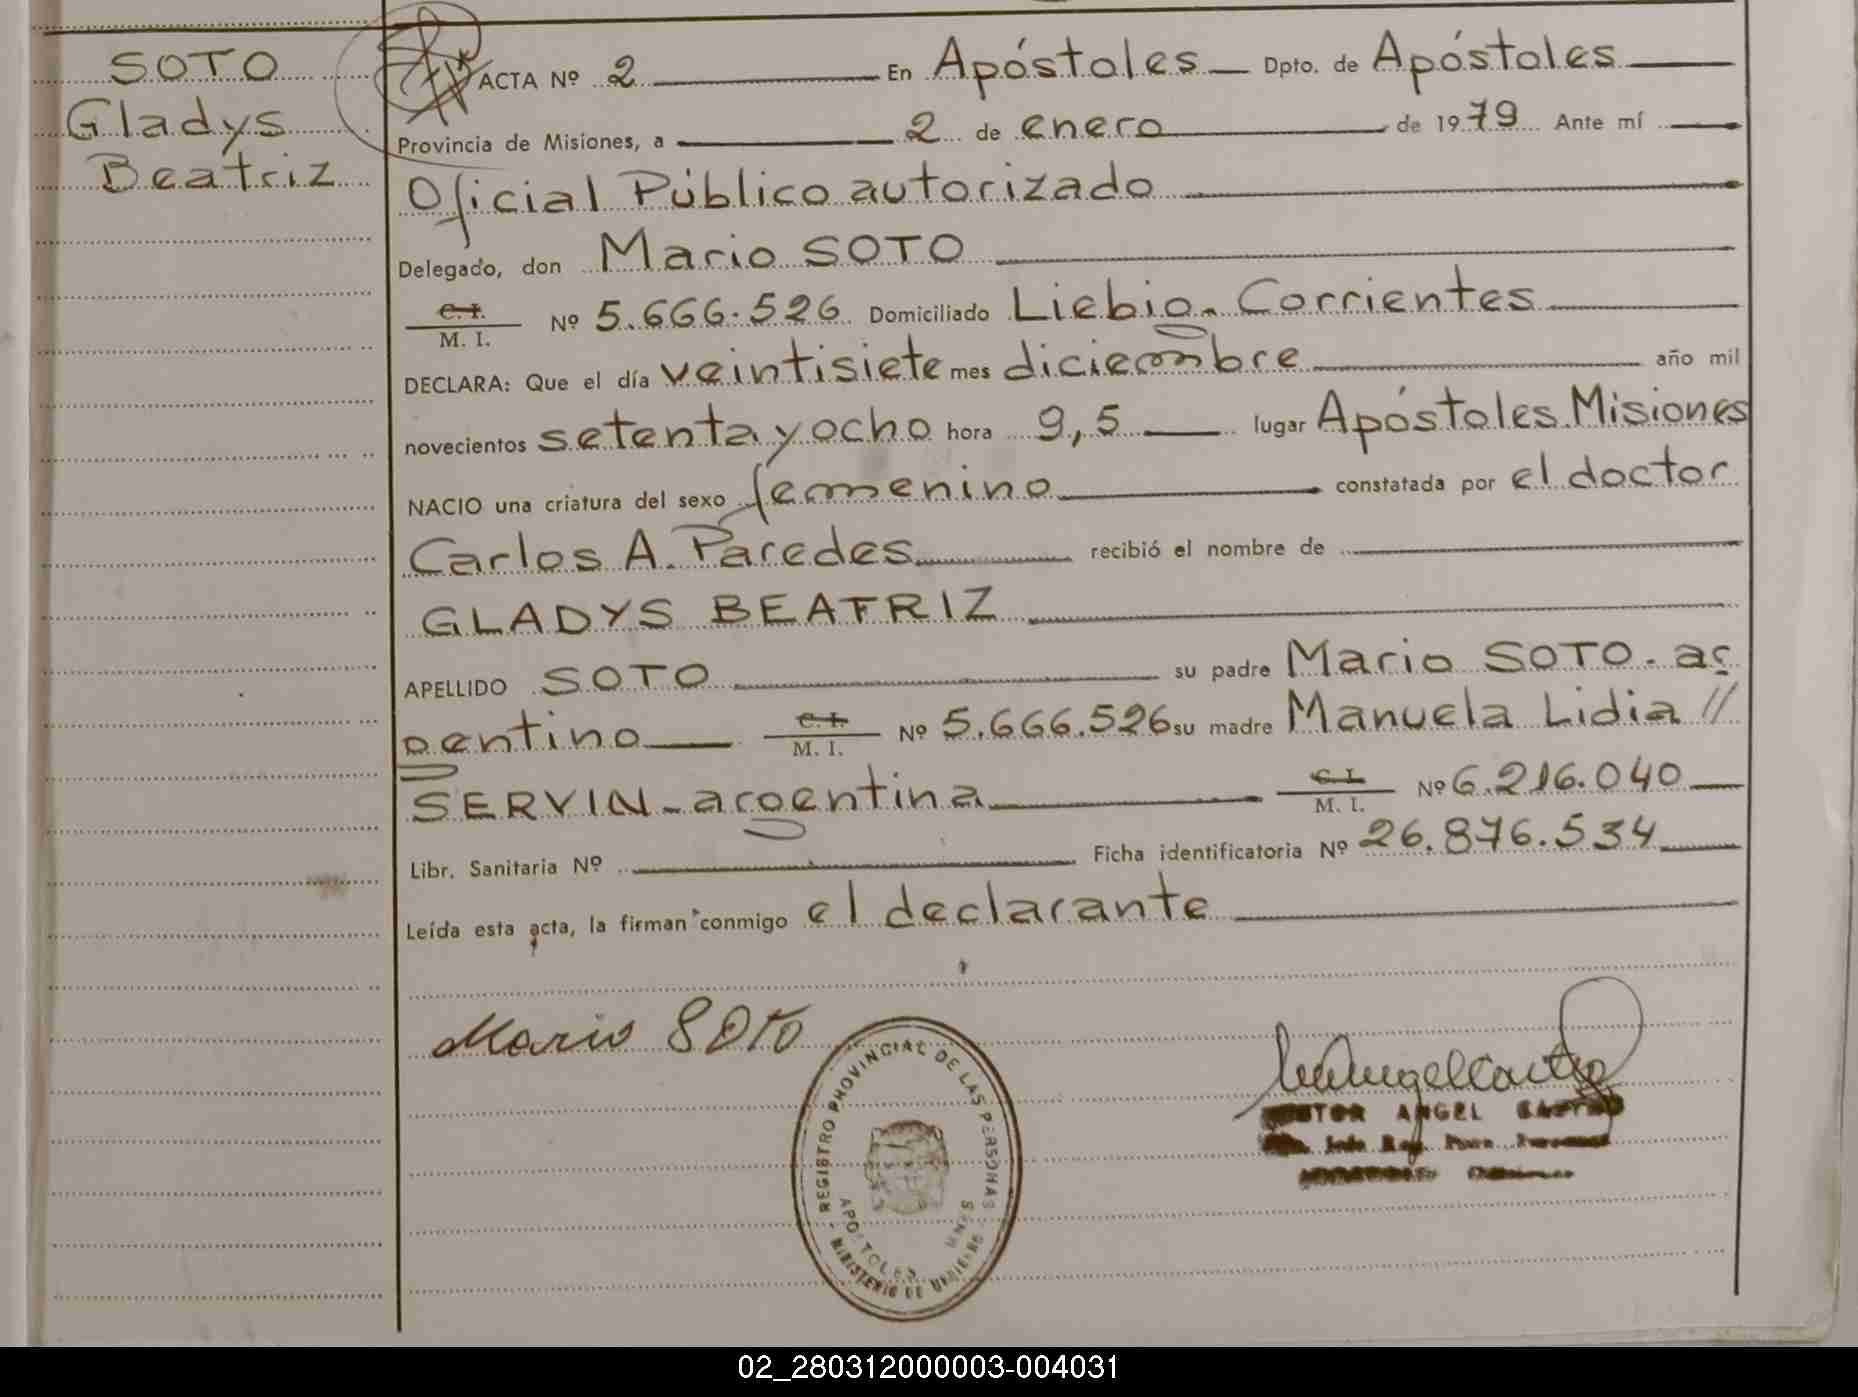 SOTO
Gladys
Beatriz
ACTA Nº 2 En Apóstoles Dpto. de Apóstoles
Provincia de Misiones, a 2 de enero de 1979 Ante mí
Oficial Público autorizado
Delegado, don Mario SOTO
C. I. M. I. Nº 5.666.526 Domiciliado Liebig. Corrientes
DECLARA: Que el día veintisiete mes diciembre año mil
novecientos setenta y ocho hora 9,5 lugar Apóstoles. Misiones
NACIO una criatura del sexo femenino constatada por el doctor
Carlos A. Paredes recibió el nombre de
GLADYS BEATRIZ
APELLIDO SOTO su padre Mario SOTO. ar
gentino C. I. M. I. Nº 5.666.526 su madre Manuela Lidia //
SERVIN - argentina C. I. M. I. Nº 6.216.040
Libr. Sanitaria Nº Ficha identificatoria Nº 26.876.534
Leída esta acta, la firman conmigo el declarante
Mario SOTO
REGISTRO PROVINCIAL DE LAS PERSONAS
APOSTOLES MNES
MINISTERIO DE GOBIERNO
ANGEL CASTRO
02_280312000003-004031